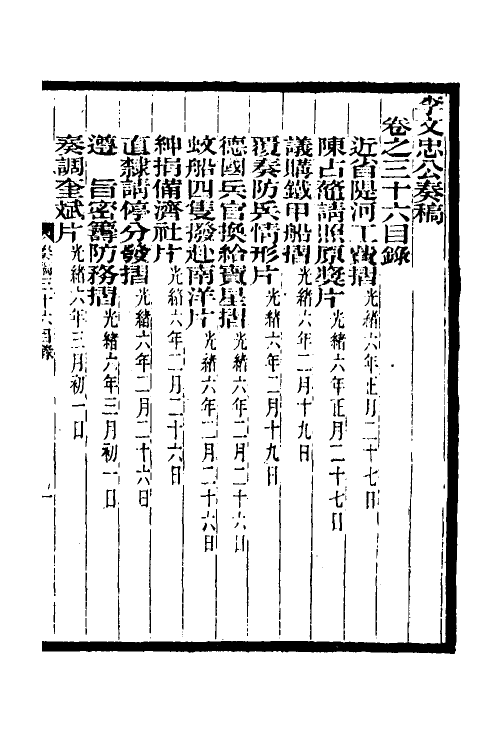 李文忠公奏稿
卷之三十六目錄
近省隄河工費摺光緒六年正月二十七日
陳占鼇請照原獎片光緒六年正月二十七日
議購鐵甲船摺光緒六年二月十九日
覆奏防兵情形片光緒六年二月十九日
德國兵官換給寶星摺光緒六年二月二十六日
蚊船四隻撥赴南洋片光緒六年二月二十六日
紳捐備濟社片光緒六年二月二十六日
直隸請停分發摺光緒六年二月二十六日
遵 旨密籌防務摺光緒六年三月初一日
奏調奎斌片光緒六年三月初一日
奏稿三十六目錄
一